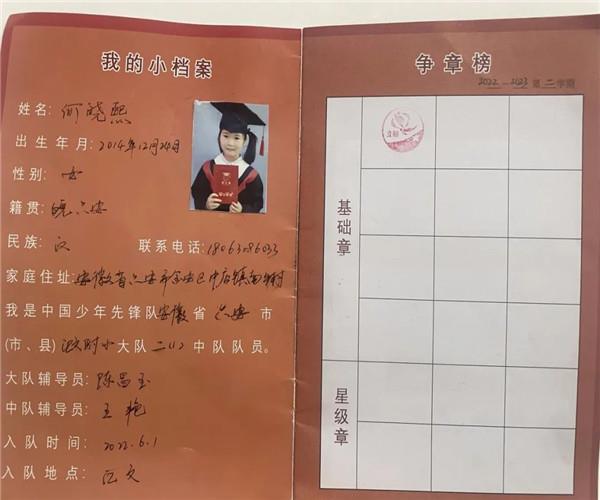 我的小档案
姓名: 何晓熙
出生年月: 2014年12月24日
性别: 女
籍贯: 皖六安
民族: 汉 联系电话: 18063086033
家庭住址: 安徽省六安市金安区中店镇
我是中国少年先锋队安徽省六安市
(市、县) 小大队二(1)中队队员。
大队辅导员: 陈昌玉
中队辅导员: 王艳
入队时间: 2022.6.1
入队地点:
争章榜
2022—2023第二学期
基础章
星级章